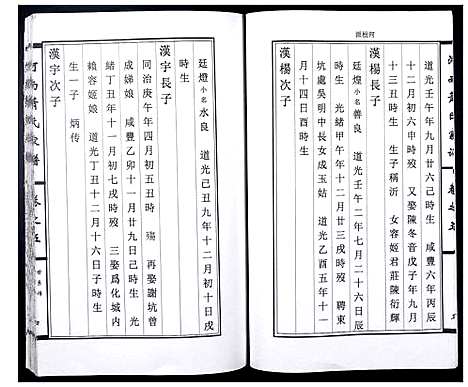 道光壬午年九月廿六己時生 咸豐六年丙辰
十二月初六申時歿 又娶陳冬音戊子年九月
十三丑時生 生子稱沂 女容姬君莊陳衍輝
漢楊長子
廷煌小名善良 道光壬午二年七月廿三日辰
時生 光緒甲午年十二月廿三戌時歿 聘東
坑處吳明中長女成玉姑 道光乙酉五年十一
月十四日酉時生
廷燈小名水良 道光己丑九年十二月初十日戌
時生
漢宇長子
同治庚午年四月初五丑時 殤 再娶謝坑曾
成娣娘 咸豐乙卯十一月廿九日己時生 光
緒丁丑年十一月初七戌時歿 三娶烏化城內
賴容姬娘 道光丁丑十二月十六日子時生
生一子 炳传
漢宇次子